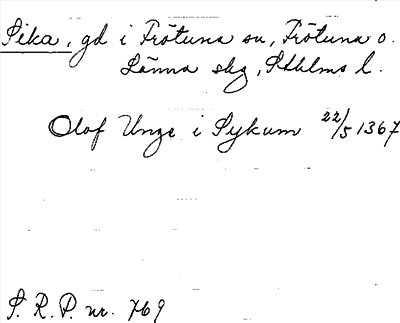 Sika, gd i Frötuna sn, Frötuna o.
Länna skg, Sthlms l.
Olof Unge i Sykum 22/5 1367
S. R. P. nr. 769